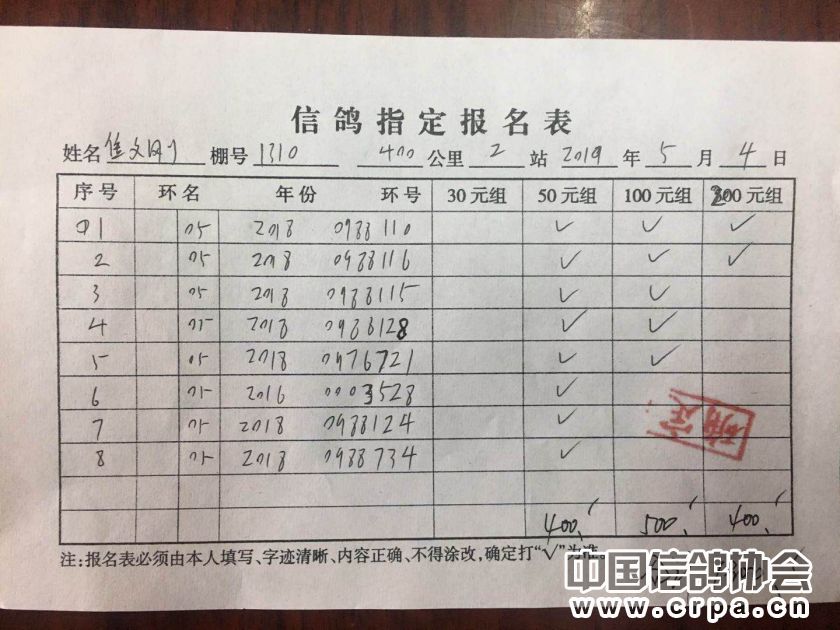 信鸽指定报名表
姓名 焦文刚 棚号 1310 400 公里 2 站 2019 年 5 月 4 日
序号 环名 年份 环号 30元组 50元组 100元组 200元组
01 05 2018 0988110 ✓ ✓ ✓
2 05 2018 0988116 ✓ ✓ ✓
3 05 2018 0988115 ✓ ✓
4 05 2018 0988128 ✓ ✓
5 05 2018 0976721 ✓ ✓
6 05 2016 0003528 ✓
7 05 2018 0988124 ✓
8 05 2018 0988734 ✓
400 500 400
注:报名表必须由本人填写、字迹清晰、内容正确、不得涂改,确定打“√”为准
中国信鸽协会
www.crpa.cn